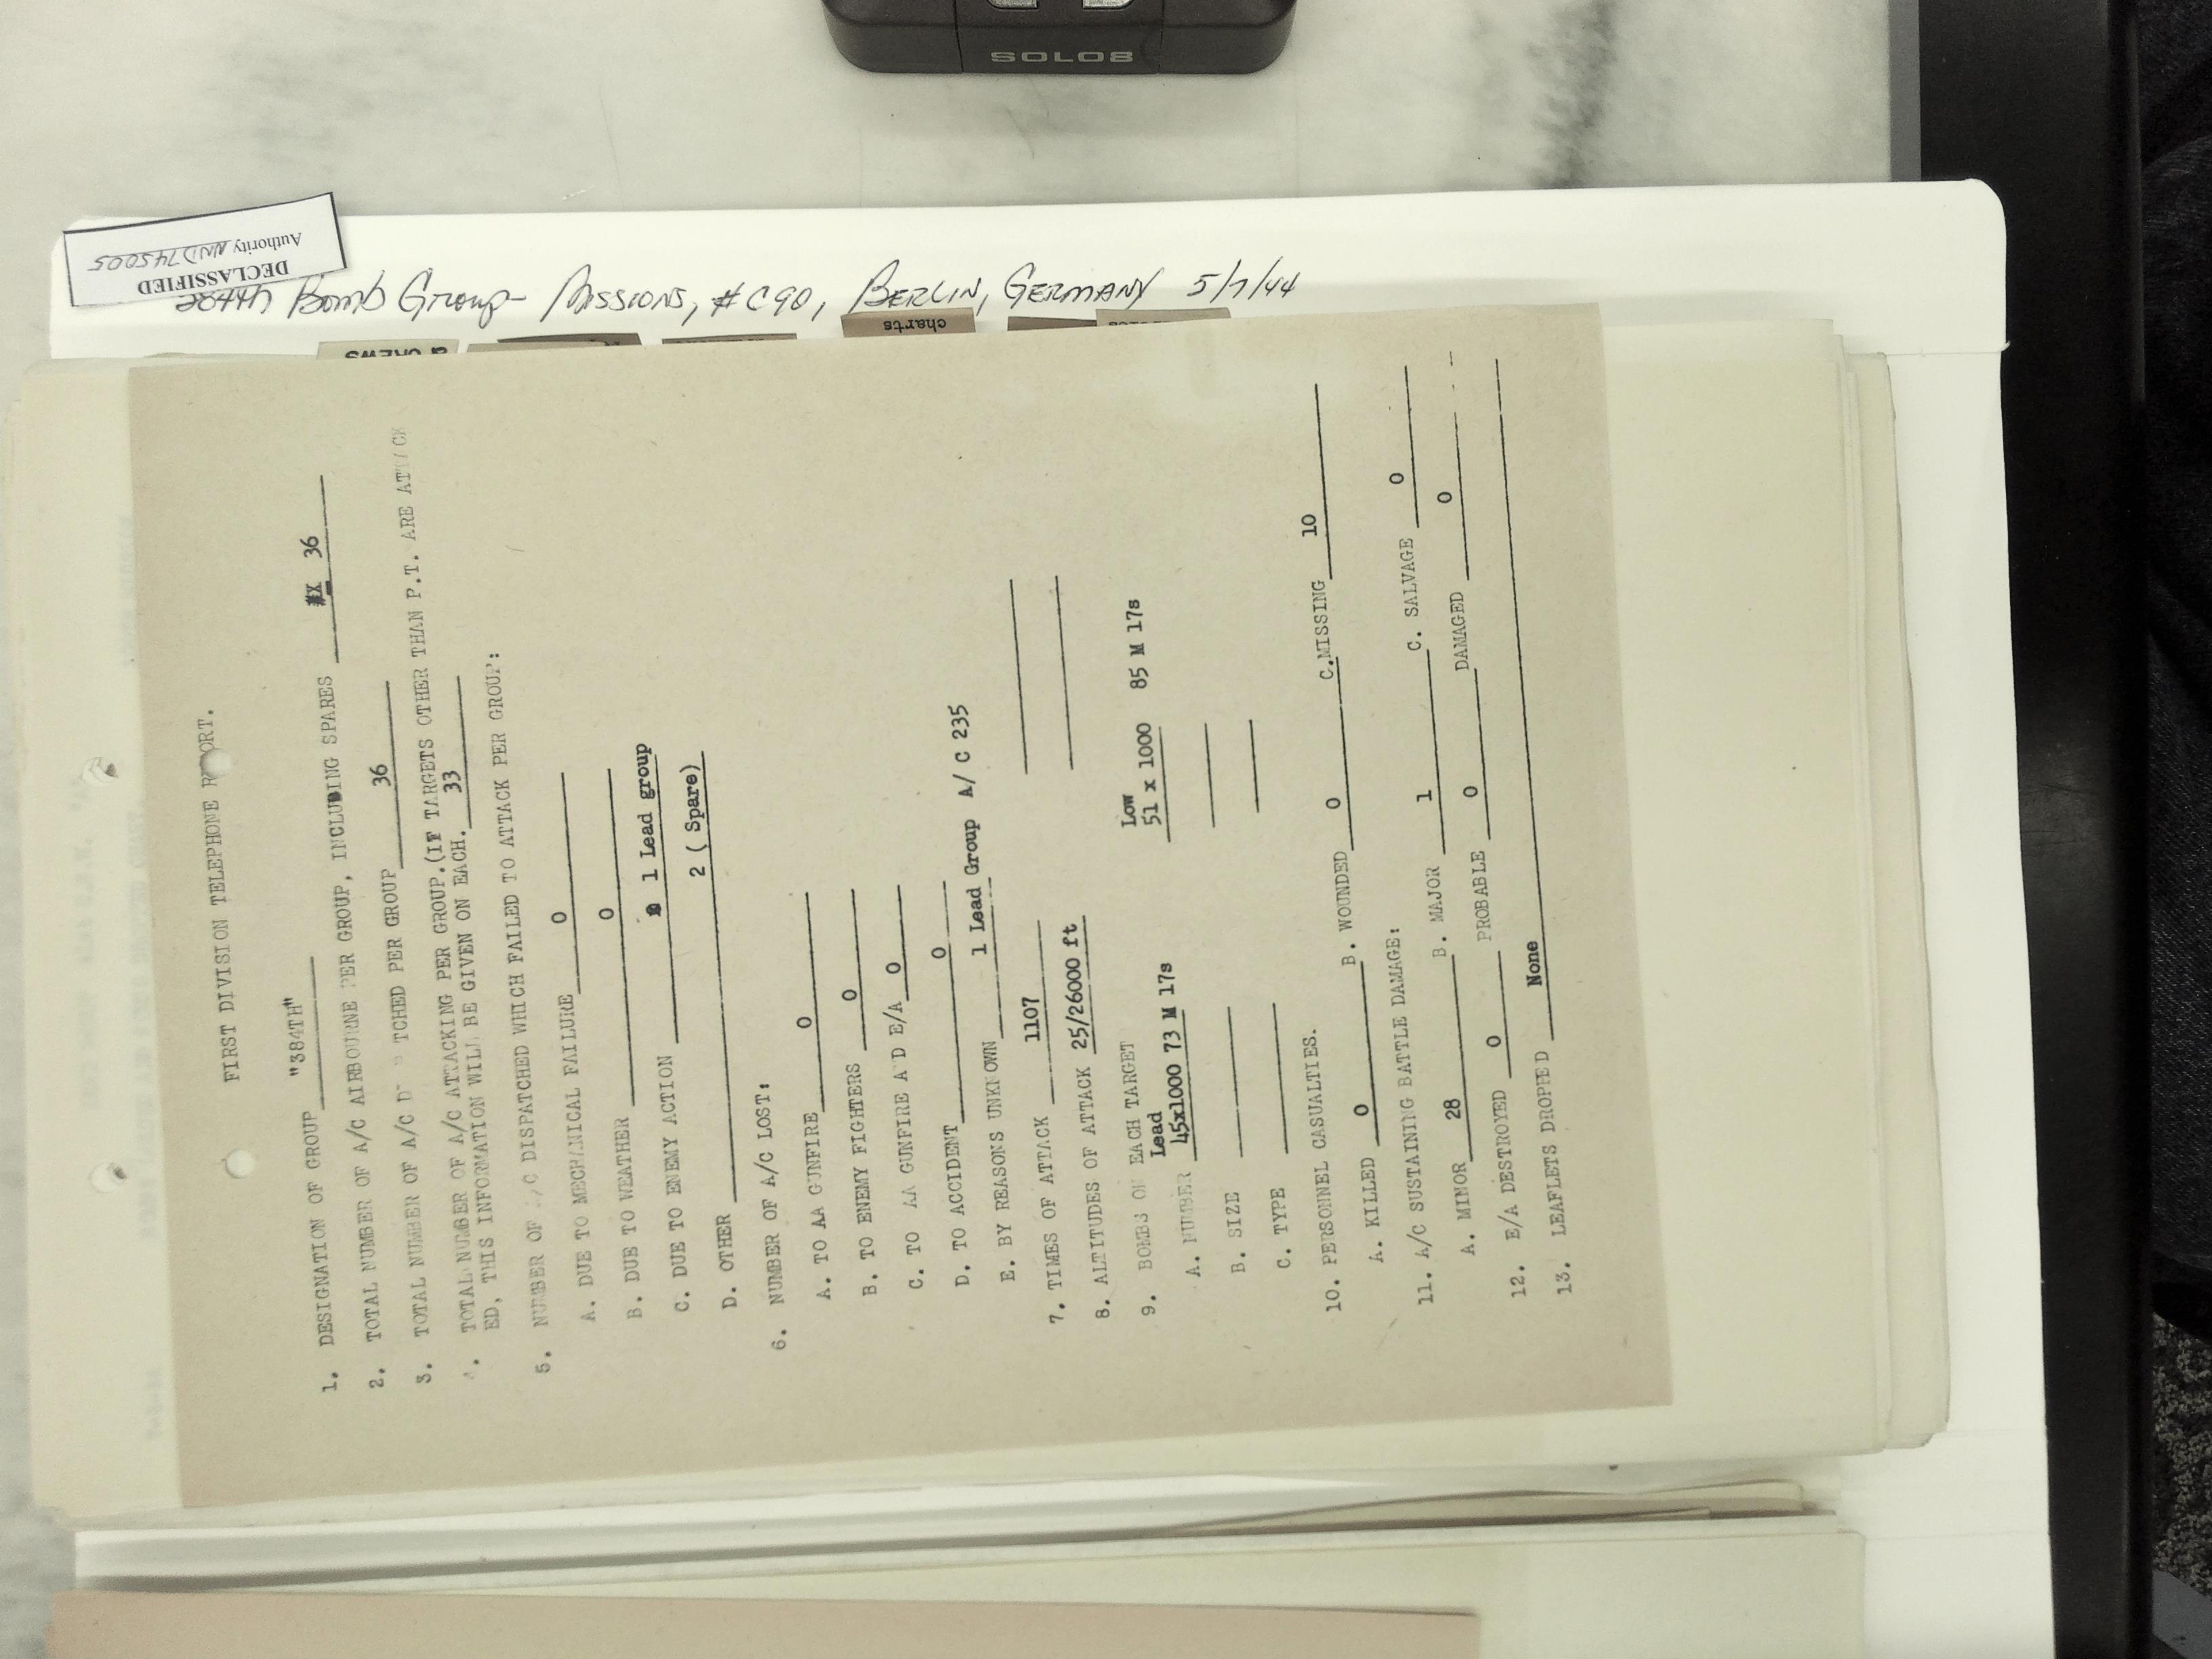 SOLO8
DECLASSIFIED
Authority NND745005
384th Bomb Group- Missions, #C90, Berlin, Germany 5/7/44
& CREWS
charts
FIRST DIVISION TELEPHONE REPORT.
1. DESIGNATION OF GROUP "384TH"
2. TOTAL NUMBER OF A/C AIRBOURNE PER GROUP, INCLUDING SPARES 36
3. TOTAL NUMBER OF A/C D TCHED PER GROUP 36
TOTAL NUMBER OF A/C ATTACKING PER GROUP.(IF TARGETS OTHER THAN P.T. ARE ATTACK
ED, THIS INFORMATION WILL BE GIVEN ON EACH. 33
5. NUMBER OF A/C DISPATCHED WHICH FAILED TO ATTACK PER GROUP:
A. DUE TO MECHANICAL FAILURE 0
B. DUE TO WEATHER 0
C. DUE TO ENEMY ACTION 1 Lead group
D. OTHER 2 ( Spare)
6. NUMBER OF A/C LOST:
A. TO AA GUNFIRE 0
B. TO ENEMY FIGHTERS 0
C. TO AA GUNFIRE A D E/A 0
D. TO ACCIDENT 0
E. BY REASONS UNKNOWN 1 Lead Group A/ C 235
7. TIMES OF ATTACK 1107
8. ALTITUDES OF ATTACK 25/26000 ft
9. BOMBS ON EACH TARGET
Lead Low
A. NUMBER 45x1000 73 M 17s 51 x 1000 85 M 17s
B. SIZE
C. TYPE
10. PERSONNEL CASUALTIES.
A. KILLED 0 B. WOUNDED 0 C.MISSING 10
11. A/C SUSTAINING BATTLE DAMAGE:
A. MINOR 28 B. MAJOR 1 C. SALVAGE 0
12. E/A DESTROYED 0 PROBABLE 0 DAMAGED 0
13. LEAFLETS DROPPED None